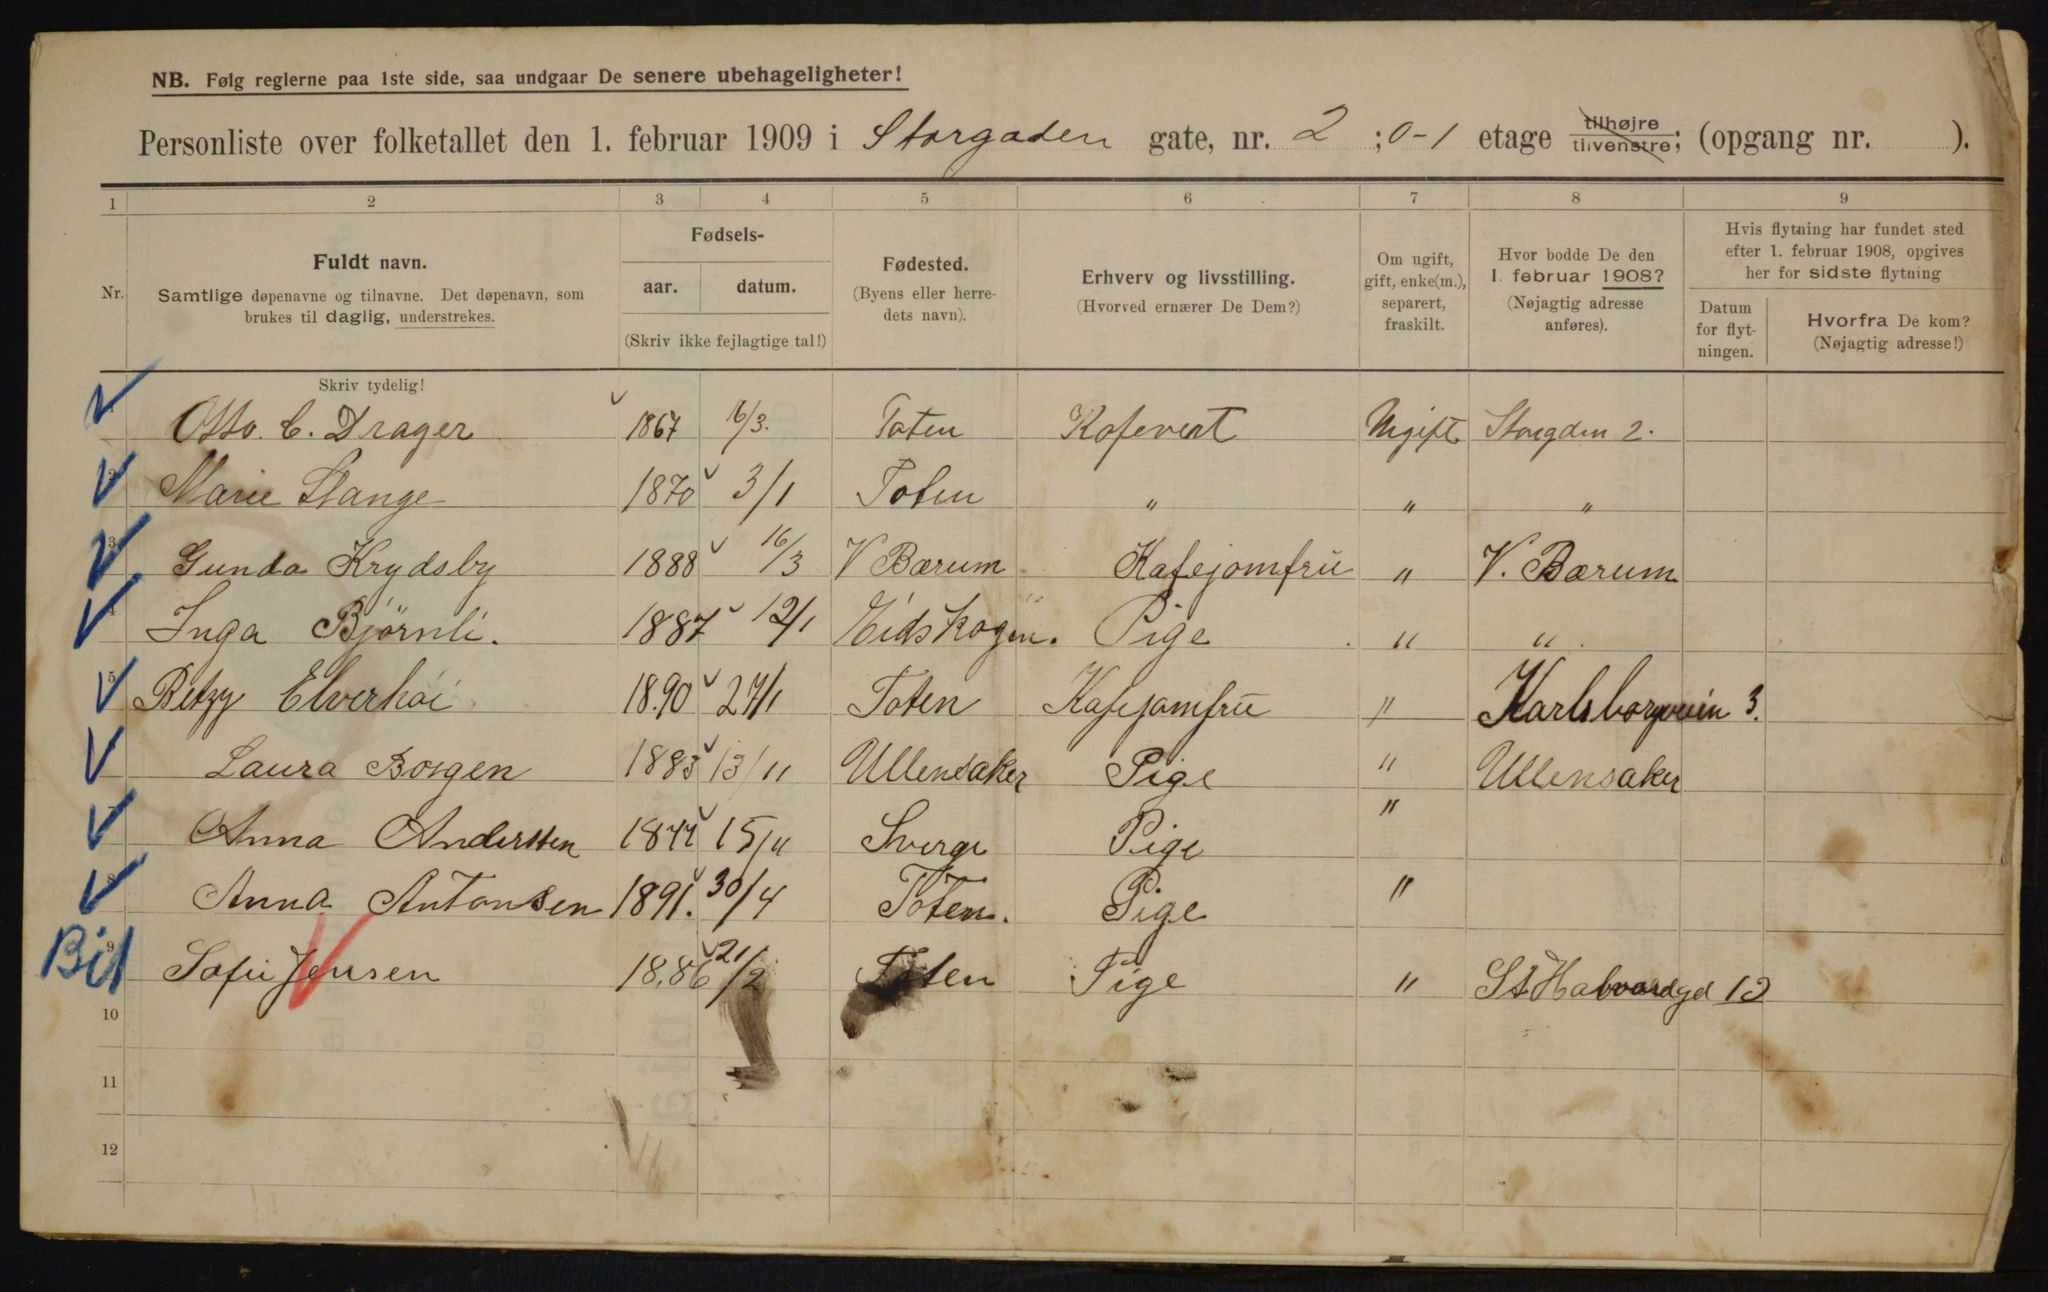 NB. Følg reglerne paa 1ste side, saa undgaar De senere ubehageligheter!
Personliste over folketallet den 1. februar 1909 i Storgaden gate, nr. 2 ; 0-1 etage tilhøjre tilvenstre; (opgang nr. ).
1 2 3 4 5 6 7 8 9
Nr.
Fuldt navn.
Samtlige døpenavne og tilnavne. Det døpenavn, som
brukes til daglig, understrekes.
Fødsels-
aar. datum.
(Skriv ikke fejlagtige tal!)
Fødested.
(Byens eller herre-
dets navn).
Erhverv og livsstilling.
(Hvorved ernærer De Dem?)
Om ugift,
gift, enke(m.),
separert,
fraskilt.
Hvor bodde De den
1. februar 1908?
(Nøjagtig adresse
anføres).
Hvis flytning har fundet sted
efter 1. februar 1908, opgives
her for sidste flytning
Datum
for flyt-
ningen.
Hvorfra De kom?
(Nøjagtig adresse!)
Skriv tydelig!
1 Otto. C. Drager 1867 6/3. Toten Kafevert Ugift Storgden 2.
2 Marie Stange 1870 3/1 Toten " " "
3 Gunda Krydsby 1888 16/3 V Bærum Kafejomfru " V. Bærum
4 Inga Björnli. 1887 12/1 Eidskogen. Pige " "
5 Betzy Elverhøi 18.90 27/1 Toten Kafejomfru " Karlsborgveien 3.
Laura Borgen 1883 13/11 Ullensaker Pige " Ullensaker
7 Anna Anderssen 1877 15/11 Sverge Pige "
8 Anna Antonsen 1891. 30/4 Toten. Pige "
Bil 9 Sofie Jensen 18.86 21/2 Toten Pige " St Halvardgd 12
10
11
12